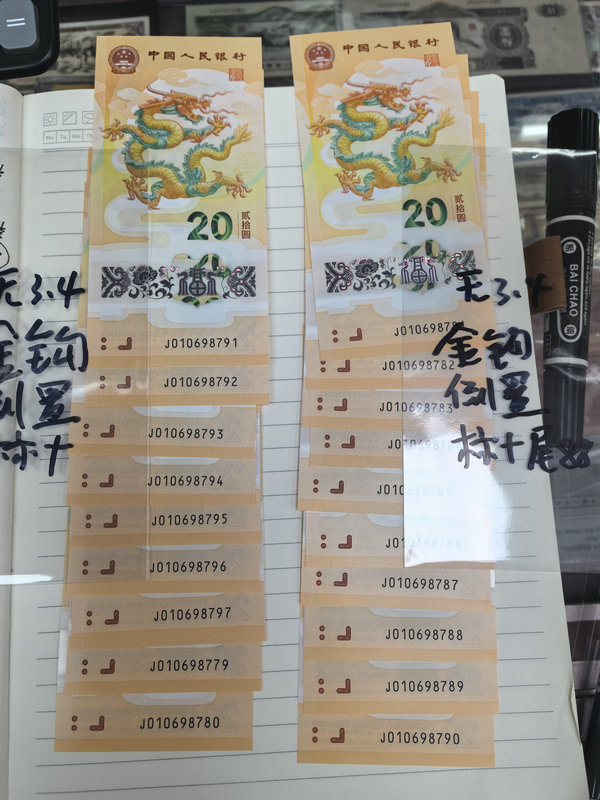 中国人民银行
20
贰拾圆
福
J010698791
J010698792
J010698793
J010698794
J010698795
J010698796
J010698797
J010698779
J010698780
中国人民银行
20
贰拾圆
福
J01069878
J010698782
J010698783
J010698785
J010698786
J010698787
J010698788
J010698789
J010698790
无3.4
金钩
倒置
标十
无3.4
金钩
倒置
标十尾88
Mo Tu We Th
BAI CHAO